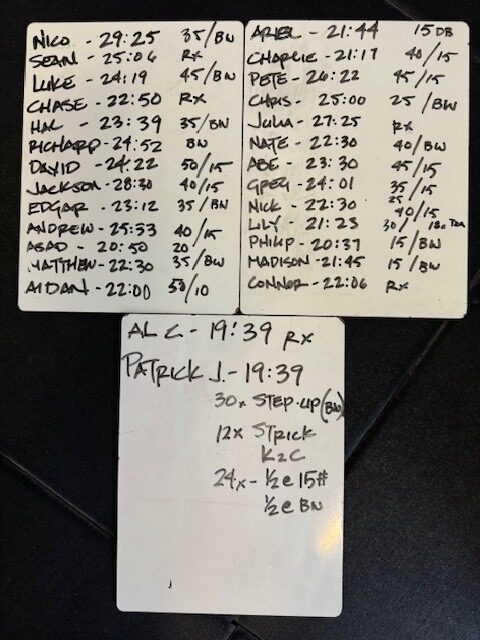 NICO - 29:25 35/BW
SEAN - 25:06 RX
LUKE - 24:19 45/BW
CHASE - 22:50 RX
HAL - 23:39 35/BW
RICHARD - 24:52 BW
DAVID - 24:22 50/15
JACKSON - 28:30 40/15
EDGAR - 23:12 35/BW
ANDREW - 25:33 40/15
ASAD - 20:50 20
MATTHEW - 22:30 35/BW
AIDAN - 22:00 50/10
ARIEL - 21:44 15 DB
CHARLIE - 21:17 40/15
PETE - 26:22 45/15
CHRIS - 25:00 25/BW
JULIA - 27:25 RX
NATE - 22:30 40/BW
ABE - 23:30 45/15
GREG - 24:01 35/15
25
NICK - 22:30 40/15
LILY - 21:23 30/
PHILIP - 20:37 15/BW
MADISON - 21:45 15/BW
CONNOR - 22:06 RX
AL C. - 19:39 RX
PATRICK J. - 19:39
30x STEP-UP (BW)
12x STRICK
K2C
24x - 1/2 @ 15#
1/2 @ BW